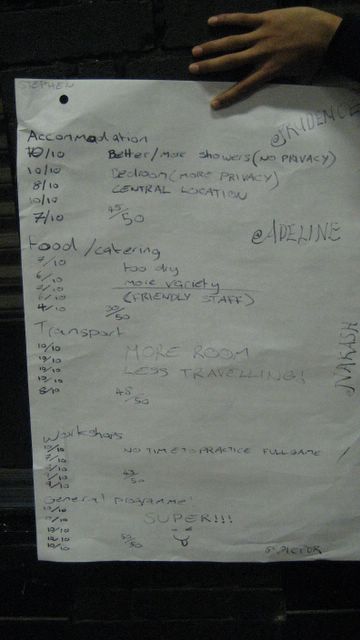 STEPHEN
Accommodation @TRIDENCE
10/10 Better/More showers (NO PRIVACY)
10/10 Bedroom (MORE PRIVACY)
8/10 CENTRAL LOCATION
10/10
7/10 45/50
@ADELINE
Food/catering
7/10 too dry
6/10 more variety
(FRIENDLY STAFF)
4/10 /50
Transport
10/10 MORE ROOM
10/10 LESS TRAVELLING!
10/10
10/10
8/10 48/50
Workshops
10/10 NO TIME TO PRACTICE FULL GAME
/50
General programme
10/10 SUPER!!!
10/10
10/10
10/10 50/50
10/10